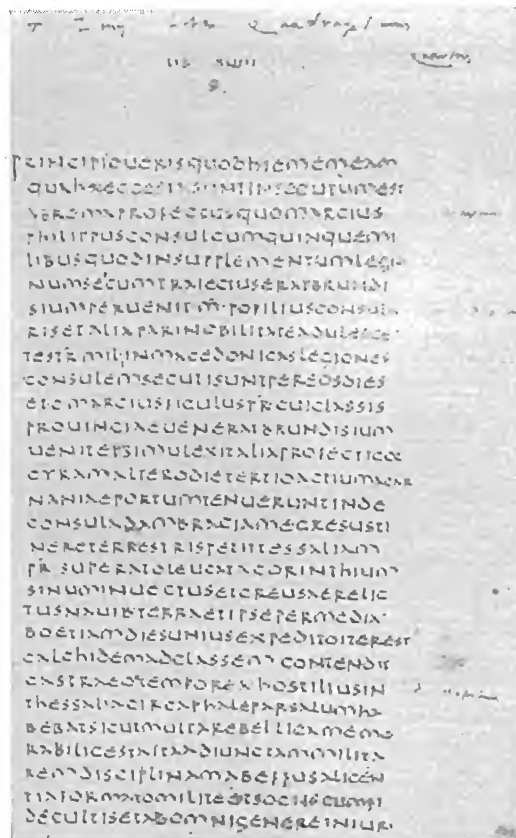 LIB XLIIII
PRINCIPIOUERISQUODHIEMEMEAM
QUAHAECGESTASUNTINSECUTUMEST
ABROMAPROFECTUSQUOMARCIUS
PHILIPPUSCONSULCUMQUINQUEMI
LIBUSQUODINSUPPLEMENTUMLEGIO
NUMSECUMTRAIECTUSERATBRUNDI
SIUMPERUENITM·POPILIUSCONSULA
RISETALIAPARINOBILITATEADULESCE
TESTRMILINMACEDONICASLEGIONES
CONSULEMSECUTISUNTPEREOSDIES
ETCMARCIUSFICULUSPRCUICLASSIS
PROUINCIAEUENERATBRUNDISIUM
UENITETSIMULEXITALIAPROFECTICOR
CYRAMALTERODIETERTIOACTIUMACAR
NANIAEPORTUMTENUERUNTINDE
CONSULADAMBRACIAMEGRESUSITI
NERETERRESTRISPETITTESSALIAM
PRSUPERATOLEUCATACORINTHIUM
SINUMINUECTUSETCREUSAERELIC
TUSNAUIBTERRAETIPSEPERMEDIA
BOETIAMDIESUNIUSEXPEDITOITEREST
CALCHIDEMADCLASSEMCONTENDIT
CASTRAEOTEMPOREAHOSTILIUSIN
THESSALIACIRCAPHALEPARSALUMHA
BEBATSICUTMULTAREBELLICAMEMO
RABILICESTAITAADIUNCTAMMILITA
REMDISCIPLINAMABEFFUSALICEN
TIAFORMATOMILITEETSOCIISCUMFI
DECULTISETABOMNIGENEREINIUR